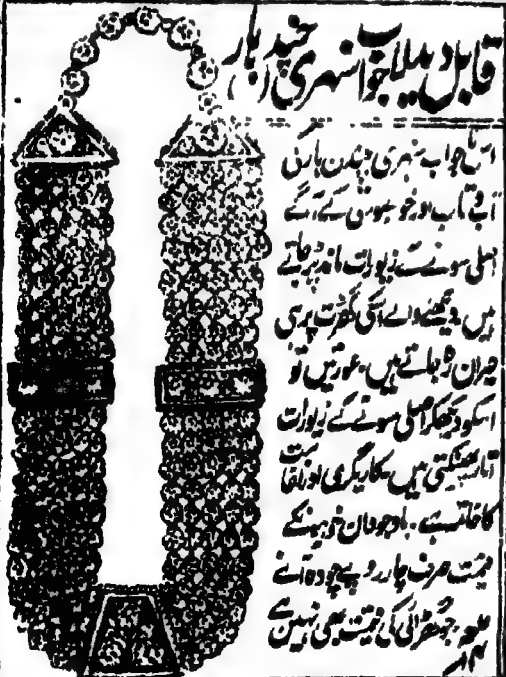 قابل دید لاجواب سنہری چندن ہار
اس لاجواب سنہری چندن ہار کی
آب و تاب اور خوبصورتی کے آگے
اصلی سونے کے زیورات ماند پڑ جاتے
ہیں۔ دیکھنے والے اسکی گھڑت پر ہی
حیران رہ جاتے ہیں۔ عورتیں تو
اسکو دیکھکر اصلی سونے کے زیورات
اتار پھینکتی ہیں۔ کاریگری اور نفاست
کا خاتمہ ہے۔ باوجود ان خوبیونکے
قیمت صرف چار روپے چودہ آنے
جو گھڑائی کی قیمت بھی نہیں ہے